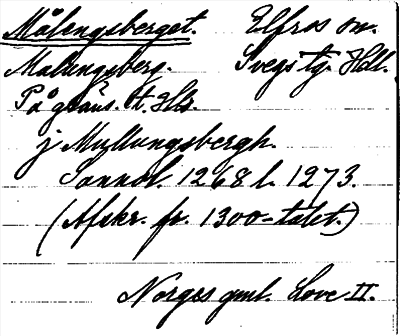 Målengsberget. Elfros sn.
Malungsberg. Svegs tg. Hdl.
På gräns. t. Hls.
j Mullungsbergh.
Sannol. 1268 l. 1273.
(Afskr. fr. 1300-talet.)
Norges gml. Love II.